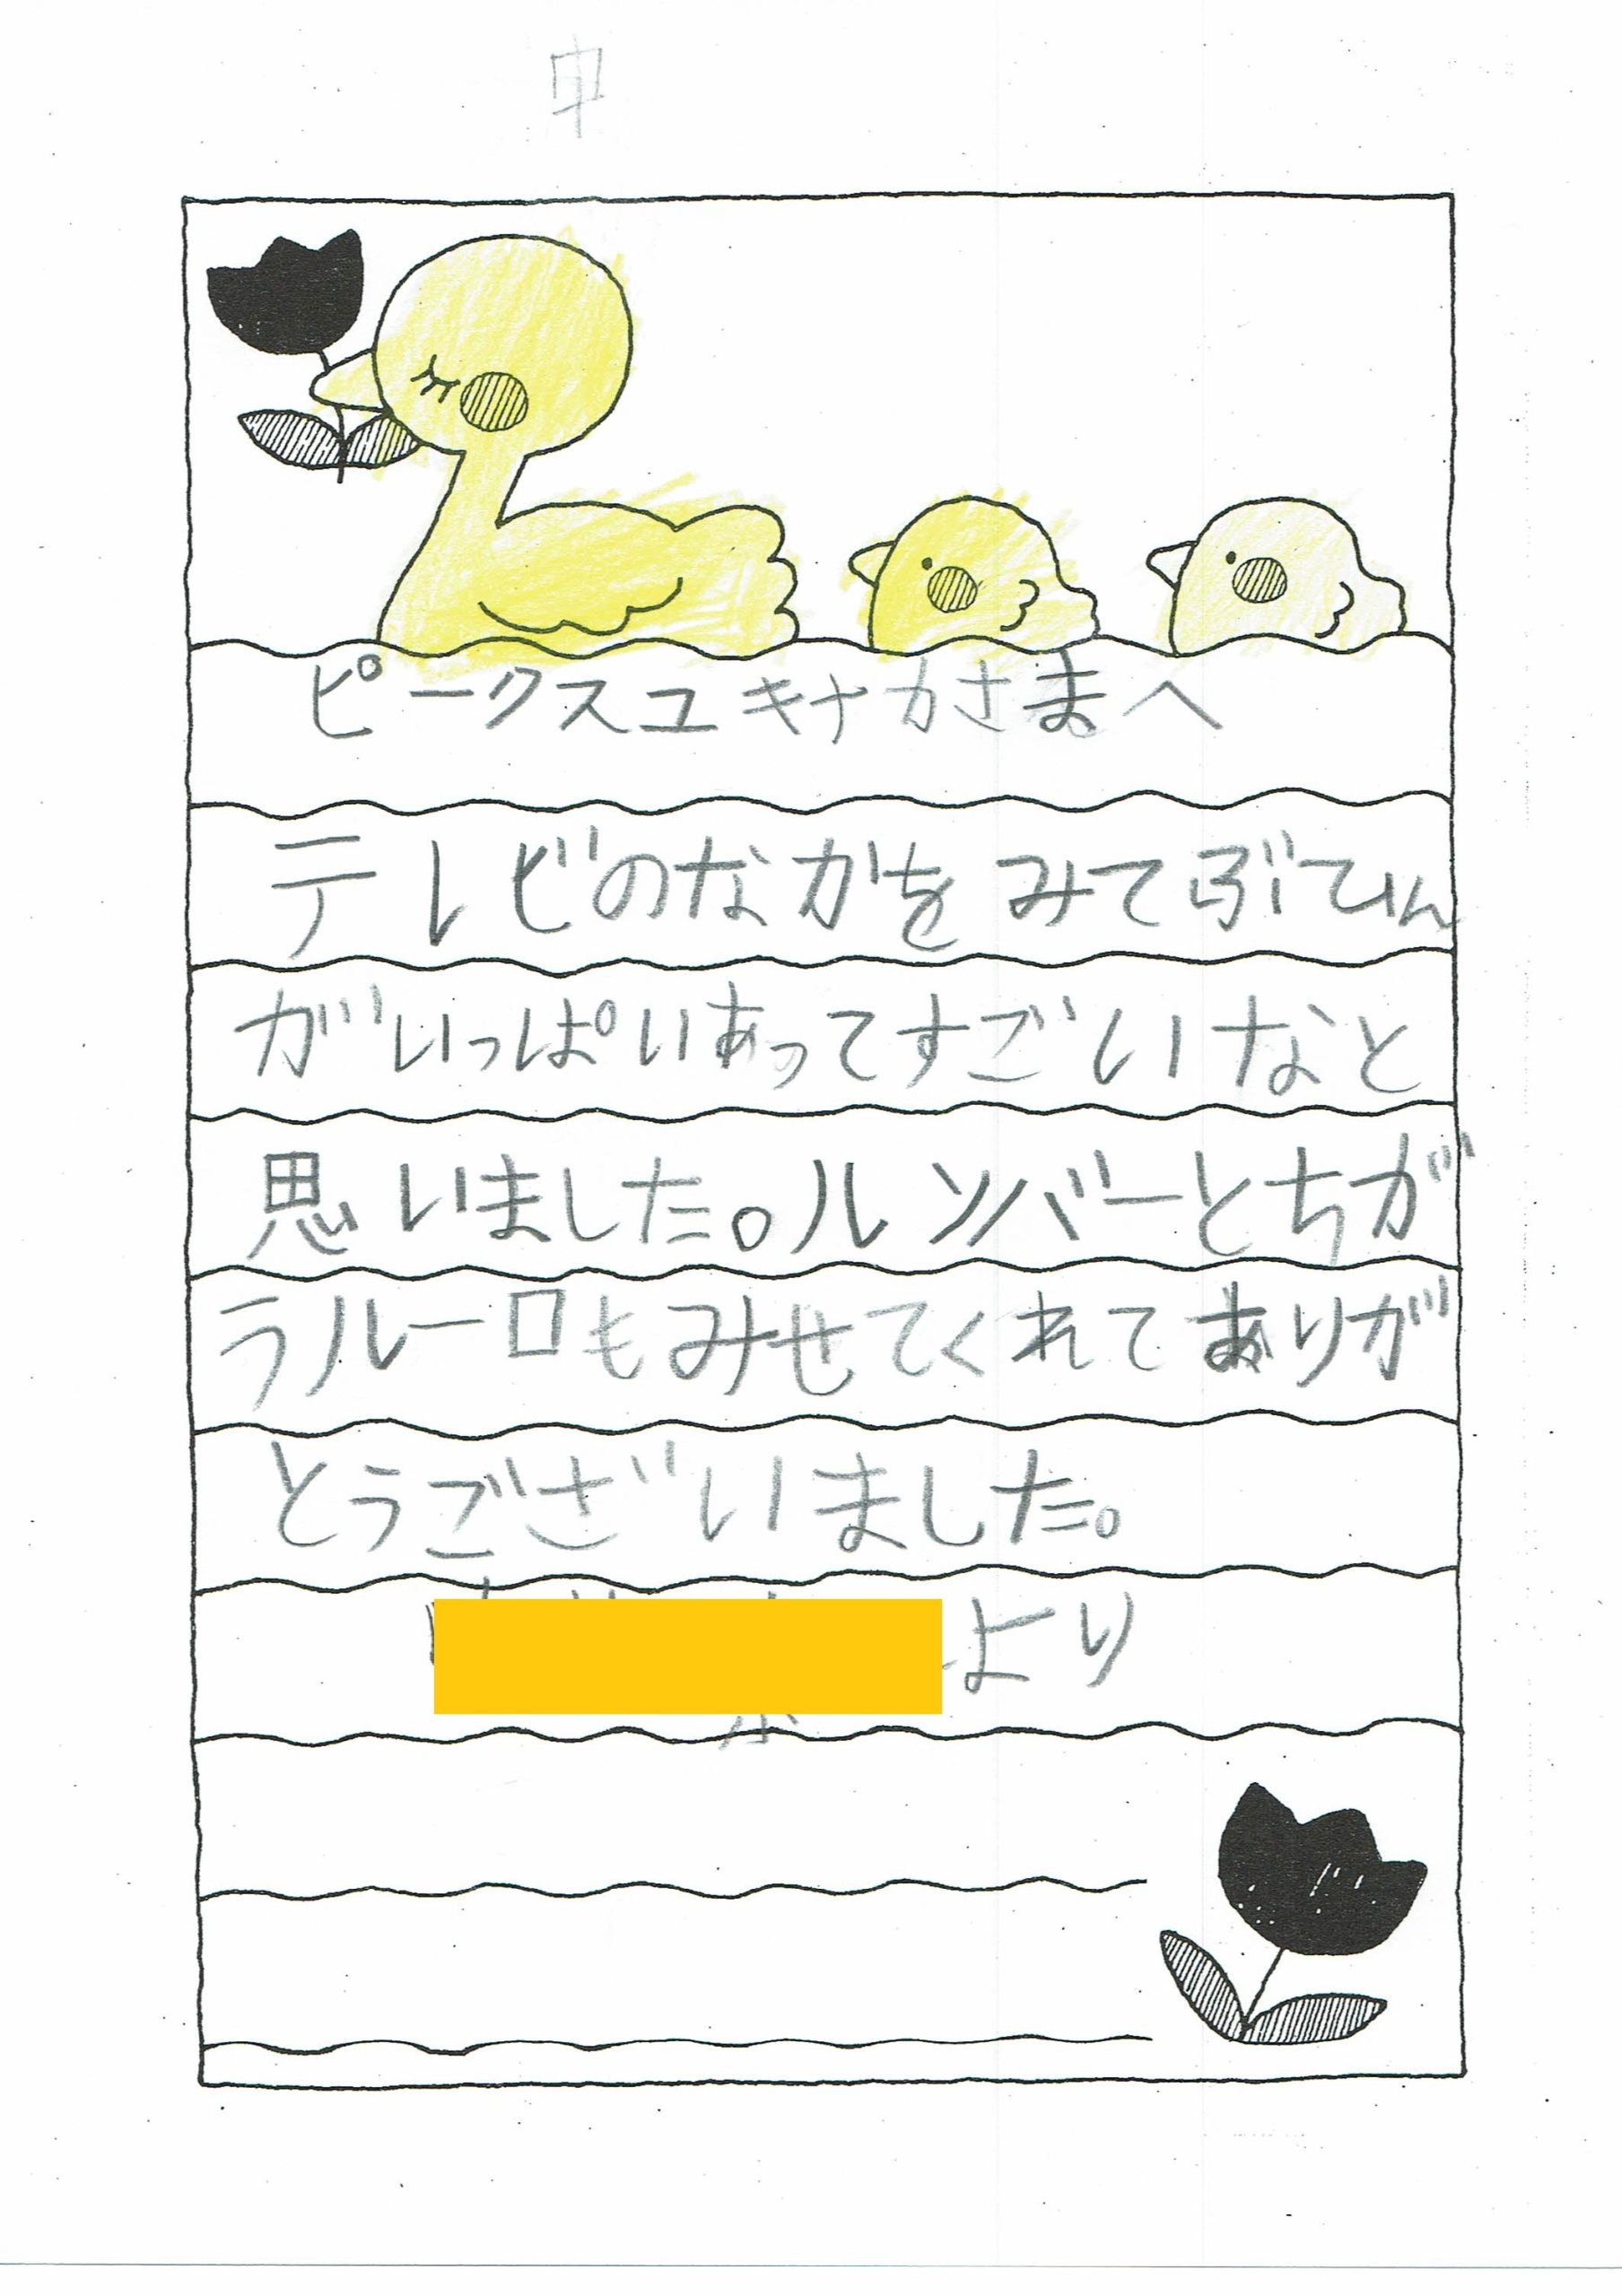 中
ピークスユキナカさまへ
テレビのなかをみてぶてひん
がいっぱいあってすごいなと
思いました。ルンバーとちが
うルーロもみせてくれてありが
とうございました。
より